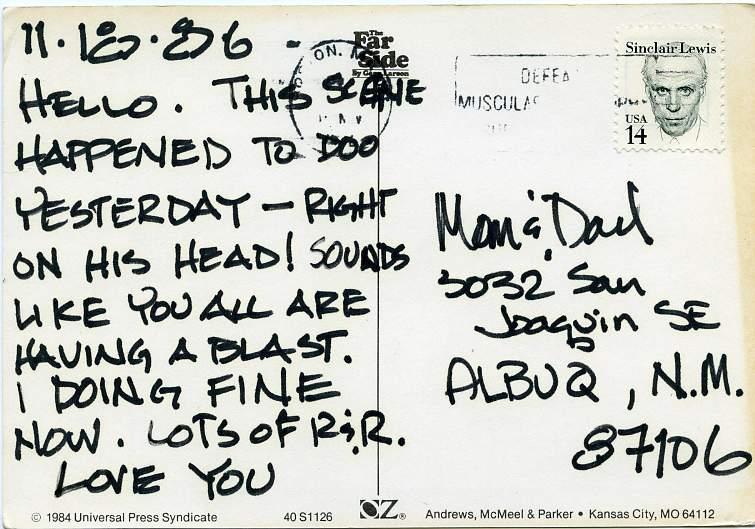 11.18.86 -
HELLO. THIS SCENE
HAPPENED TO DOO
YESTERDAY — RIGHT
ON HIS HEAD! SOUNDS
LIKE YOU ALL ARE
HAVING A BLAST.
I DOING FINE
NOW. LOTS OF R&R.
LOVE YOU
The
Far
Side
By Gary Larson
ON. M
DEFEA
MUSCULA
Sinclair Lewis
USA
14
Mom & Dad
3032 San
Joaquin SE
ALBUQ, N.M.
87106
© 1984 Universal Press Syndicate
40 S1126
OZ®
Andrews, McMeel & Parker • Kansas City, MO 64112